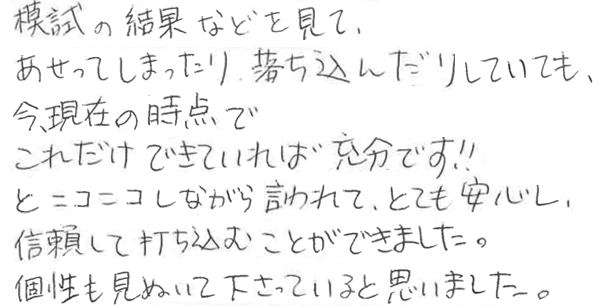 模試の結果などを見て、
あせってしまったり、落ち込んだりしていても、
今、現在の時点で
これだけできていれば充分です!!
とニコニコしながら言われて、とても安心し、
信頼して打ち込むことができました。
個性も見ぬいて下さっていると思いました。